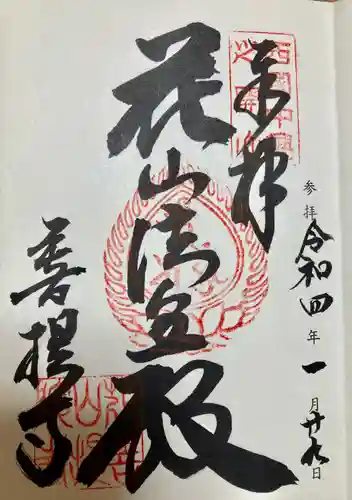 奉拝
参拝 令和四年一月廿九日
西国中興
花山法皇殿
菩提寺